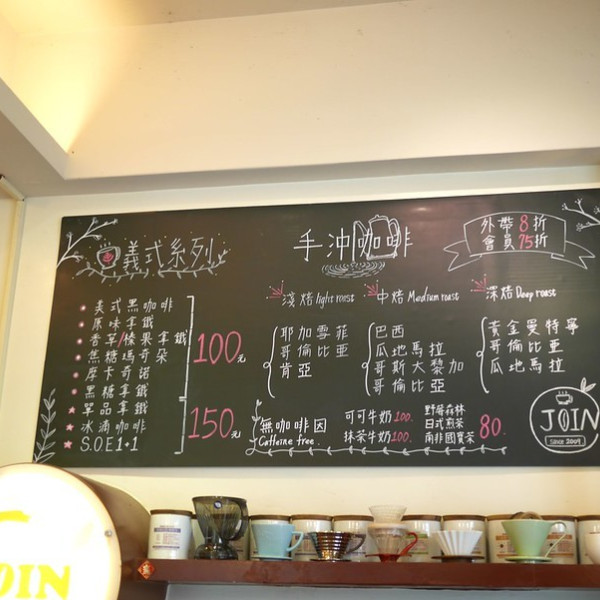 義式系列
美式黑咖啡
原味拿鐵
香草/榛果拿鐵
焦糖瑪奇朵
摩卡奇諾
黑糖拿鐵
單品拿鐵
冰滴咖啡
S.O.E 1+1
100元
150元
手沖咖啡
外帶8折
會員75折
淺焙 light roast
耶加雪菲
哥倫比亞
肯亞
中焙 Medium roast
巴西
瓜地馬拉
哥斯大黎加
哥倫比亞
深焙 Deep roast
黃金曼特寧
哥倫比亞
瓜地馬拉
無咖啡因
Caffeine free.
可可牛奶100.
抹茶牛奶100.
野莓森林
日式煎茶
南非國寶茶
80.
JOIN
Since 2009
OIN